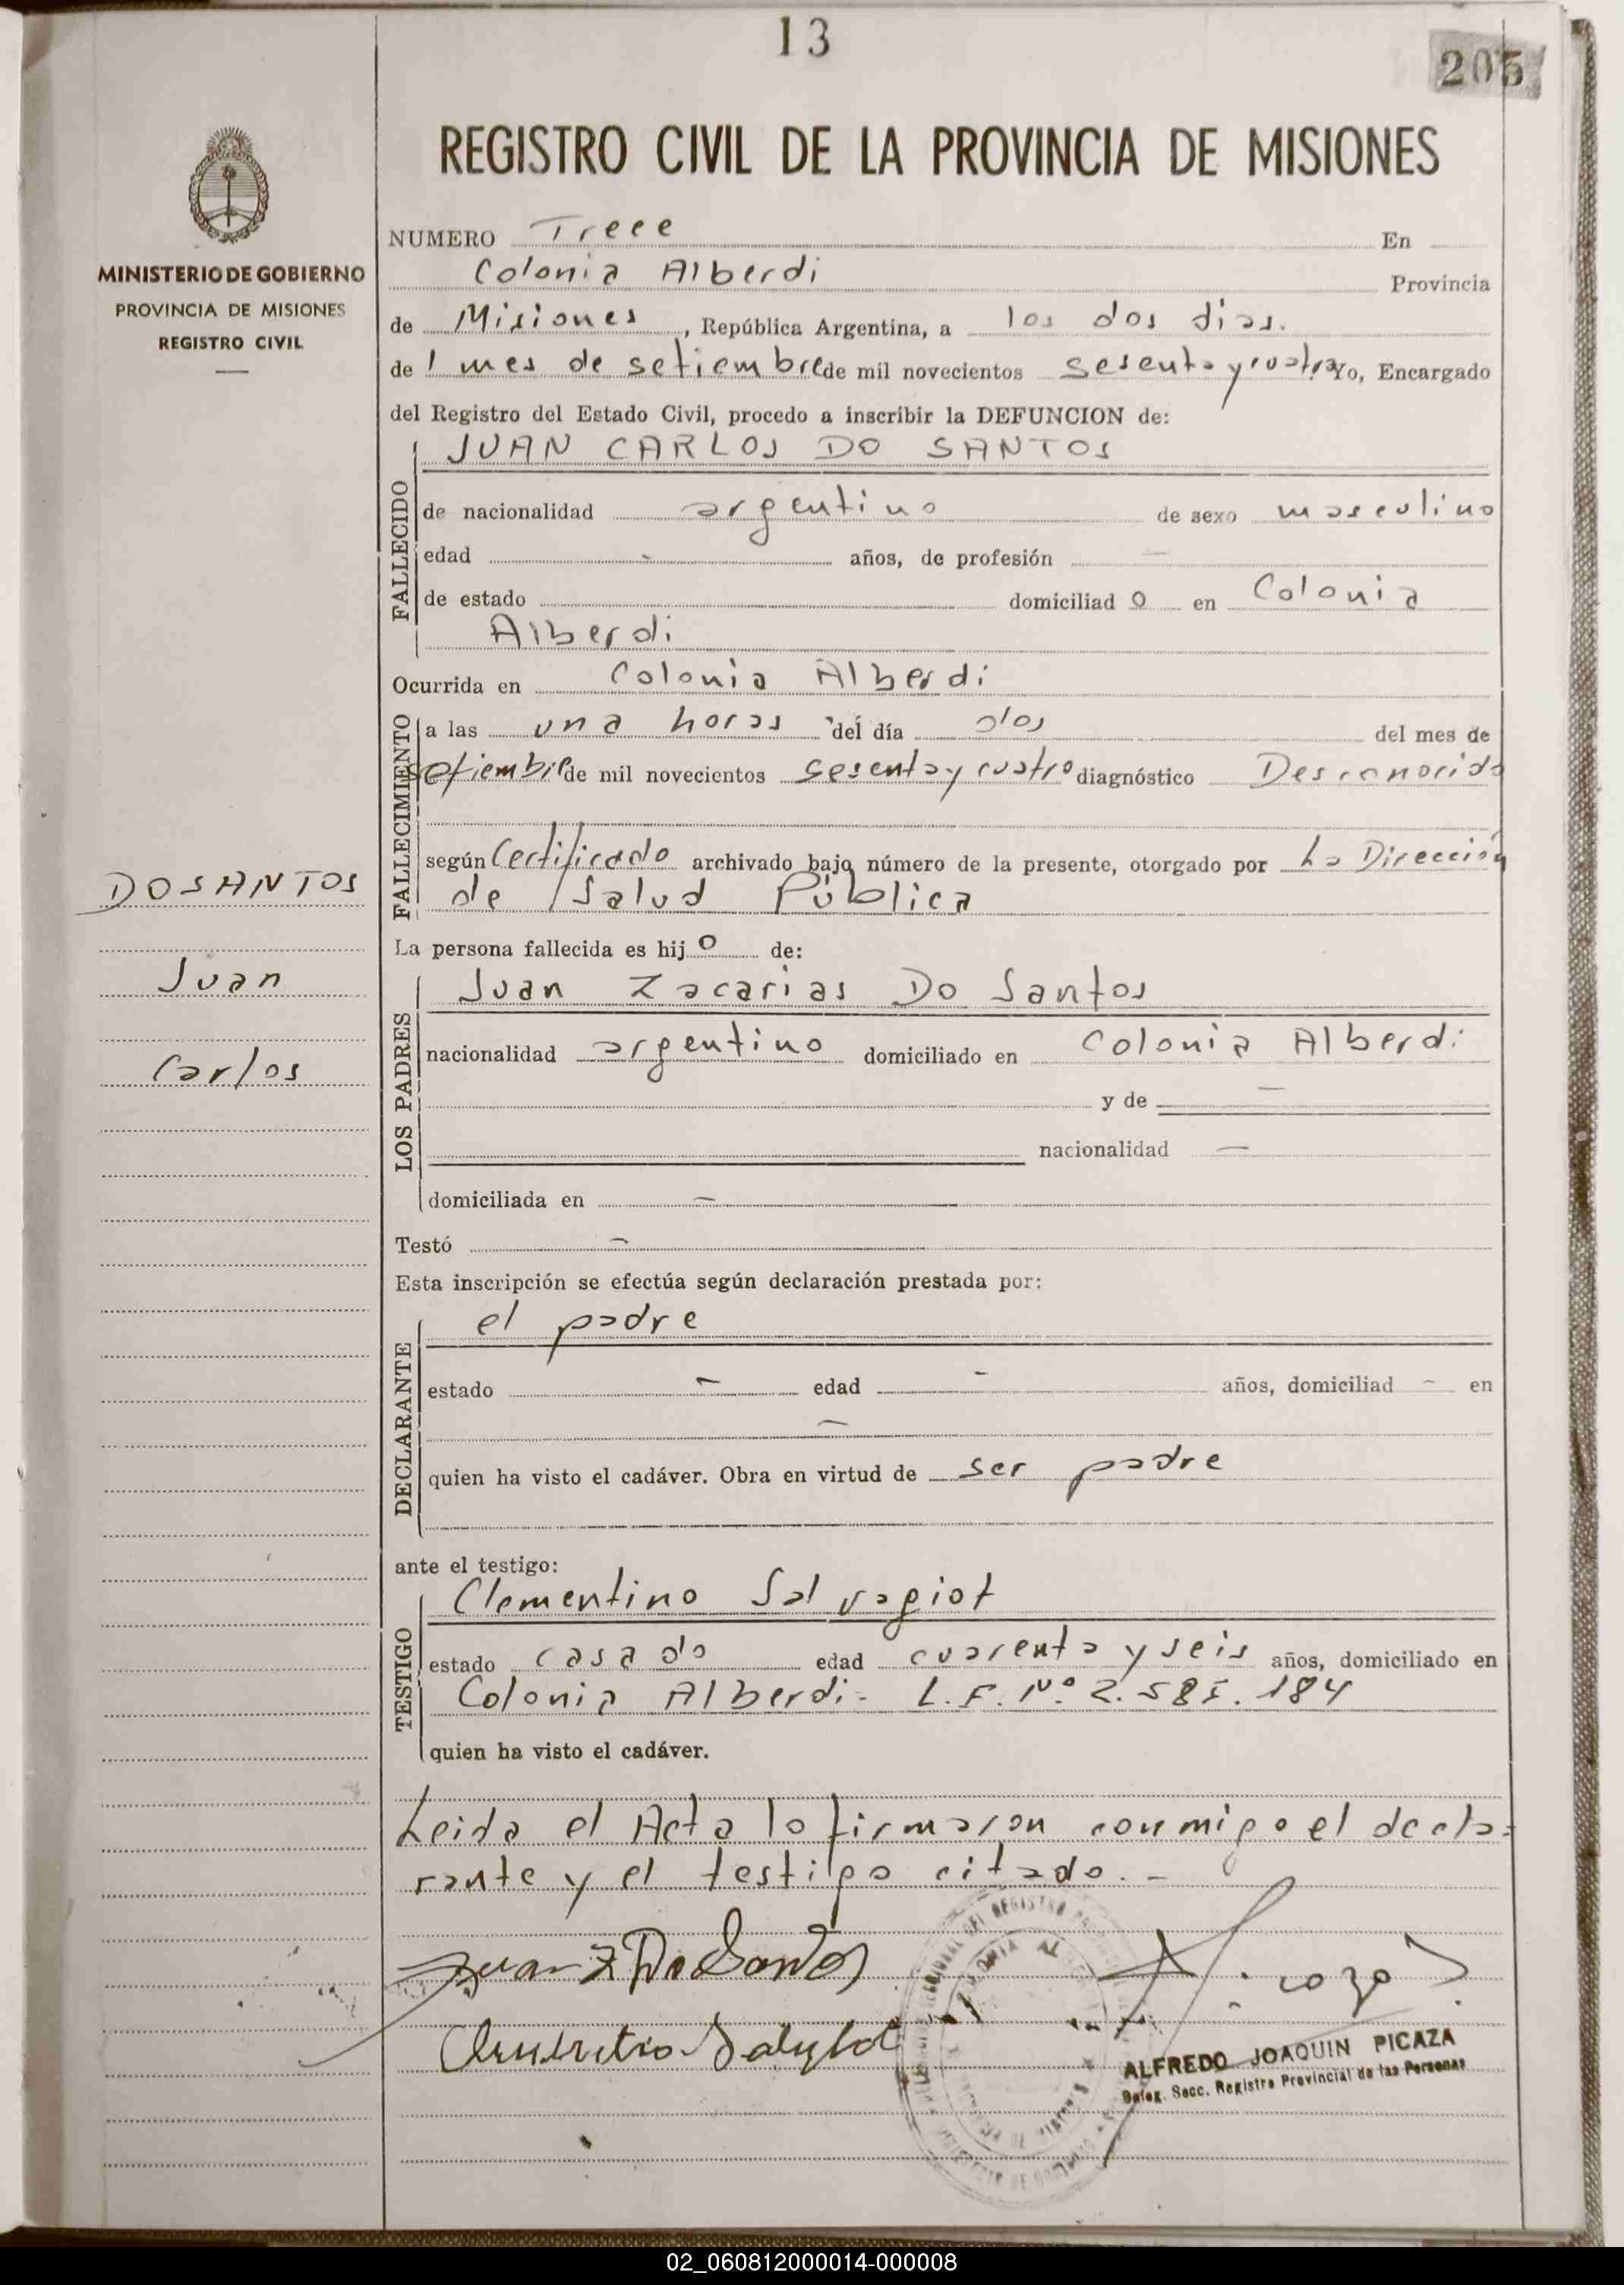 13
205
REGISTRO CIVIL DE LA PROVINCIA DE MISIONES
MINISTERIO DE GOBIERNO
PROVINCIA DE MISIONES
REGISTRO CIVIL
DOSANTOS
Juan
Carlos
NUMERO Trece En
Colonia Alberdi Provincia
de Misiones, República Argentina, a los dos dias.
de l mes de setiembre de mil novecientos sesenta y cuatro Yo, Encargado
del Registro del Estado Civil, procedo a inscribir la DEFUNCION de:
FALLECIDO
JUAN CARLOS DO SANTOS
de nacionalidad argentino de sexo masculino
edad - años, de profesión -
de estado domiciliado en Colonia
Alberdi
Ocurrida en Colonia Alberdi
FALLECIMIENTO
a las una horas del día dos del mes de
setiembre de mil novecientos sesenta y cuatro diagnóstico Desconocido
según Certificado archivado bajo número de la presente, otorgado por La Dirección
de Salud Pública
La persona fallecida es hijo de:
LOS PADRES
Juan Zacarias Do Santos
nacionalidad argentino domiciliado en Colonia Alberdi
y de -
nacionalidad -
domiciliada en -
Testó -
Esta inscripción se efectúa según declaración prestada por:
DECLARANTE
el padre
estado - edad - años, domiciliad - en
-
quien ha visto el cadáver. Obra en virtud de ser padre
ante el testigo:
TESTIGO
Clementino Salvagiot
estado casado edad cuarenta y seis años, domiciliado en
Colonia Alberdi-
quien ha visto el cadáver.
Leida el Acta lo firmaron conmigo el decla-
rante y el testigo citado. -
Juan Z Do Santos
ALFREDO JOAQUIN PICAZA
Deleg. Secc. Registro Provincial de las Personas
02_060812000014-000008